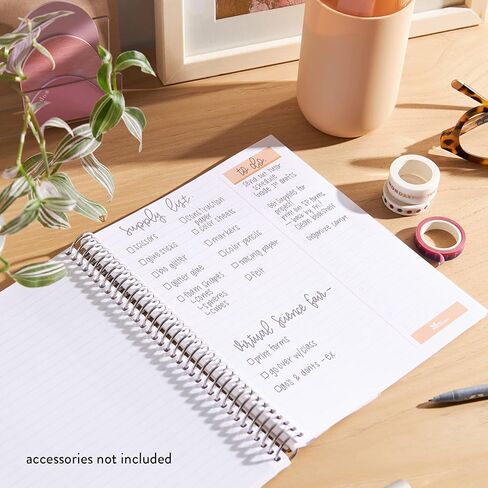 Supply list
scissors
glue sticks
big glitter
glitter glue
foam shapes
↳ cones
↳ spheres
↳ cubes
construction
paper
color sheets
markers
color pencils
tracing paper
felt
Virtual Science fair -
print forms
go over w/class
dos & donts - EX
to do
send out tutor
schedule
grade IM drafts
print out IP forms
clean bookshelf
organize lamps
accessories not included